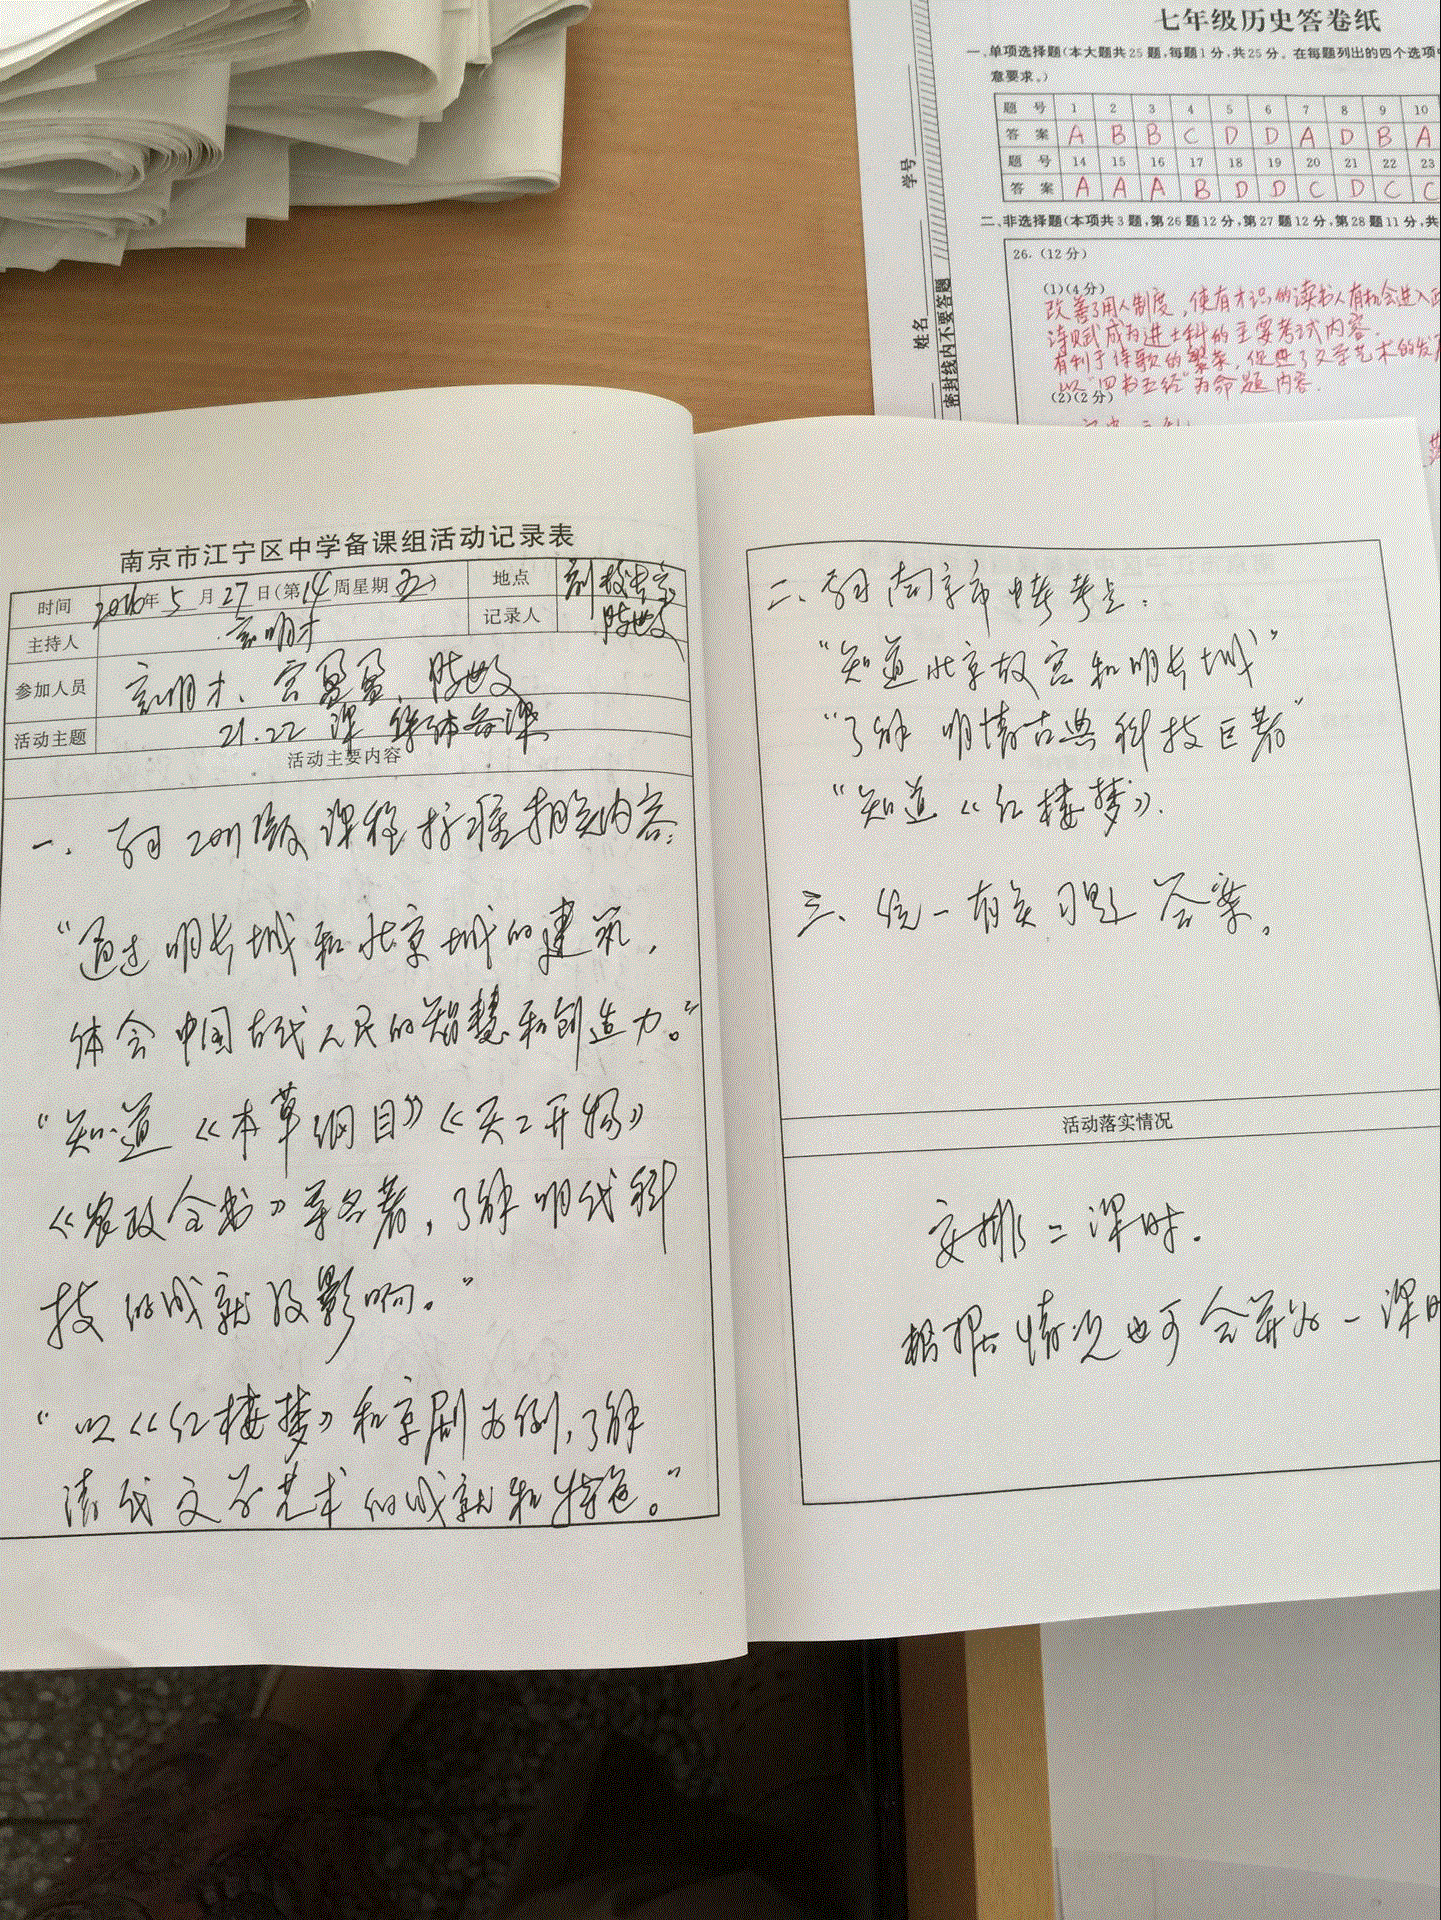 七年级历史答卷纸
一、单项选择题(本大题共25题,每题1分,共25分。在每题列出的四个选项
意要求。)
题 号 1 2 3 4 5 6 7 8 9 10
答 案 A B B C D D A D B A
题 号 14 15 16 17 18 19 20 21 22 23
答 案 A A A B D D C D C C
二、非选择题(本项共3题,第26题12分,第27题12分,第28题11分,共
26.(12分)
(1)(4分)
改善了用人制度,使有才识的读书人有机会进入
诗赋成为进士科的主要考试内容.
有利于诗歌的繁荣,促进了文学艺术的发
(2)(2分)
以"四书五经"为命题内容.
学号
姓名
密封线内不要答题
南京市江宁区中学备课组活动记录表
时间 2016年5月27日(第14周星期五) 地点
主持人 记录人
参加人员
活动主题 21.22 课 集体备课
活动主要内容
一、 2011版课程标准相关内容:
"通过明长城和北京城的建筑,
体会中国古代人民的智慧和创造力。"
"知道《本草纲目》《天工开物》
《农政全书》等名著,了解明代科
技的成就及影响。"
"以《红楼梦》和京剧为例,了解
清代文学艺术的成就和特色。"
二、 南京市中考考点:
"知道北京故宫和明长城"
"了解明清古典科技巨著"
"知道《红楼梦》.
三、统一有关习题答案。
活动落实情况
安排二课时.
根据情况也可合并为一课时